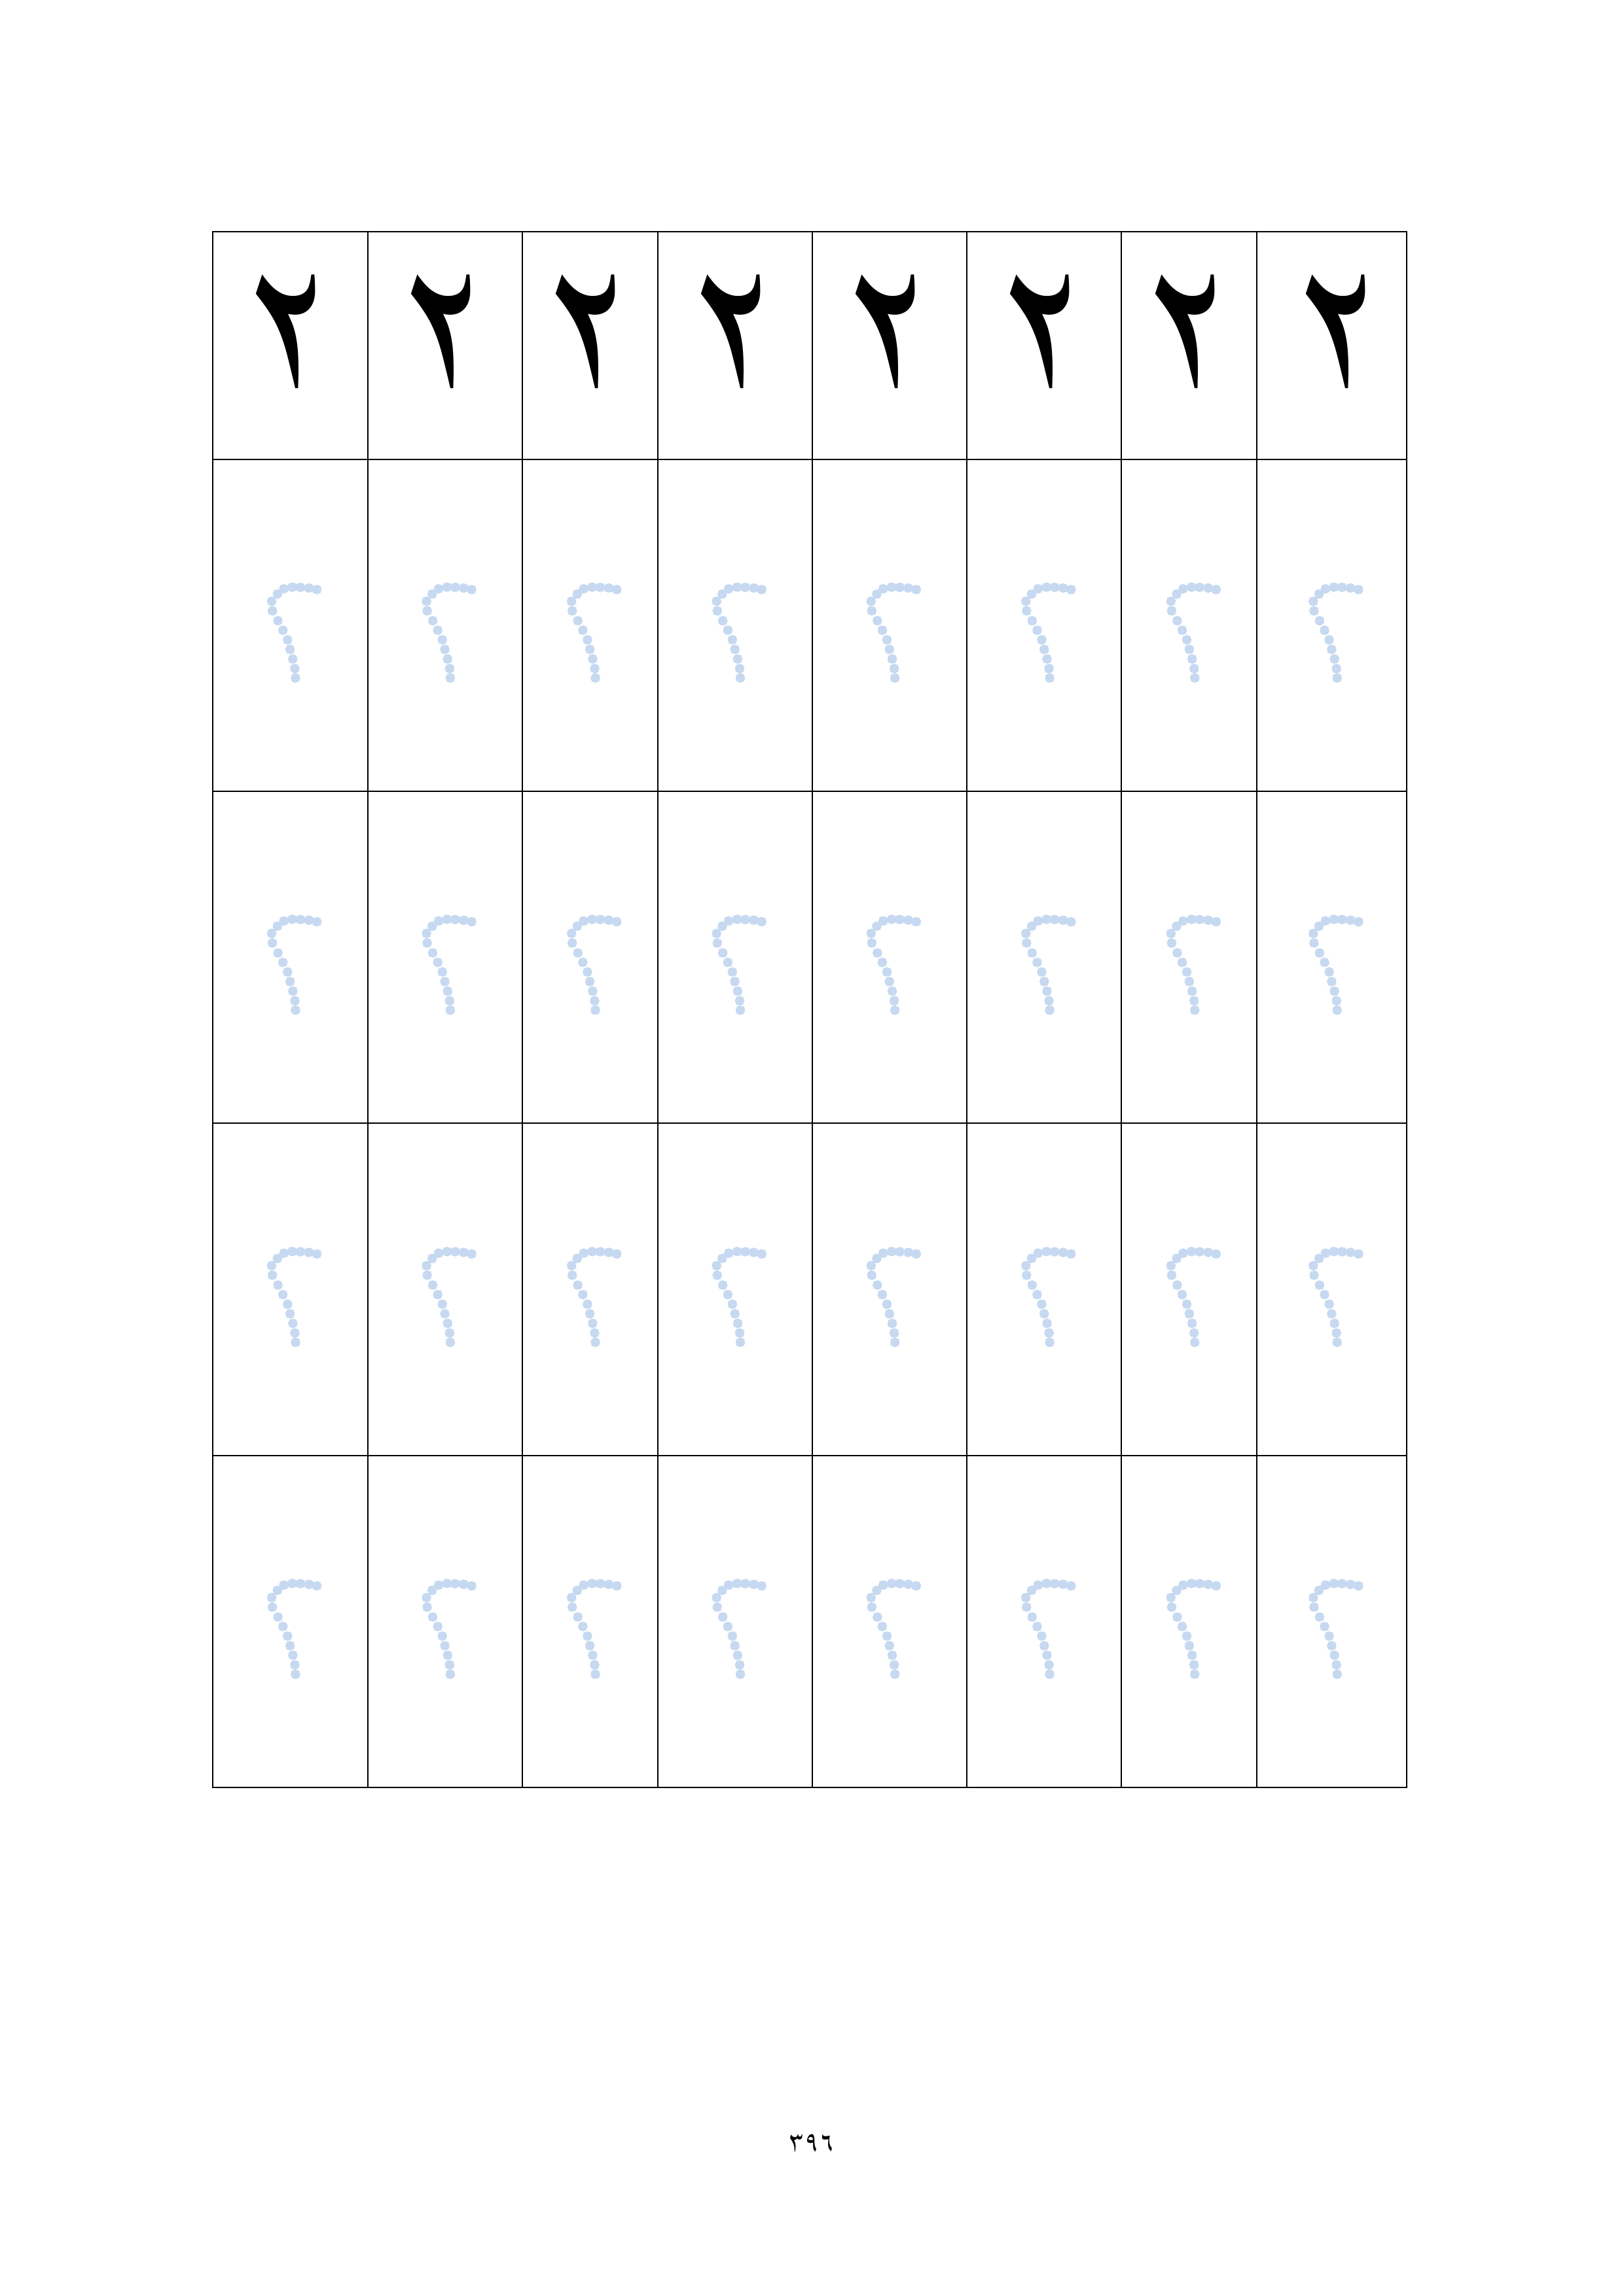 ٢ ٢ ٢ ٢ ٢ ٢ ٢ ٢
٢ ٢ ٢ ٢ ٢ ٢ ٢ ٢
٢ ٢ ٢ ٢ ٢ ٢ ٢ ٢
٢ ٢ ٢ ٢ ٢ ٢ ٢ ٢
٢ ٢ ٢ ٢ ٢ ٢ ٢ ٢
٣٩٦